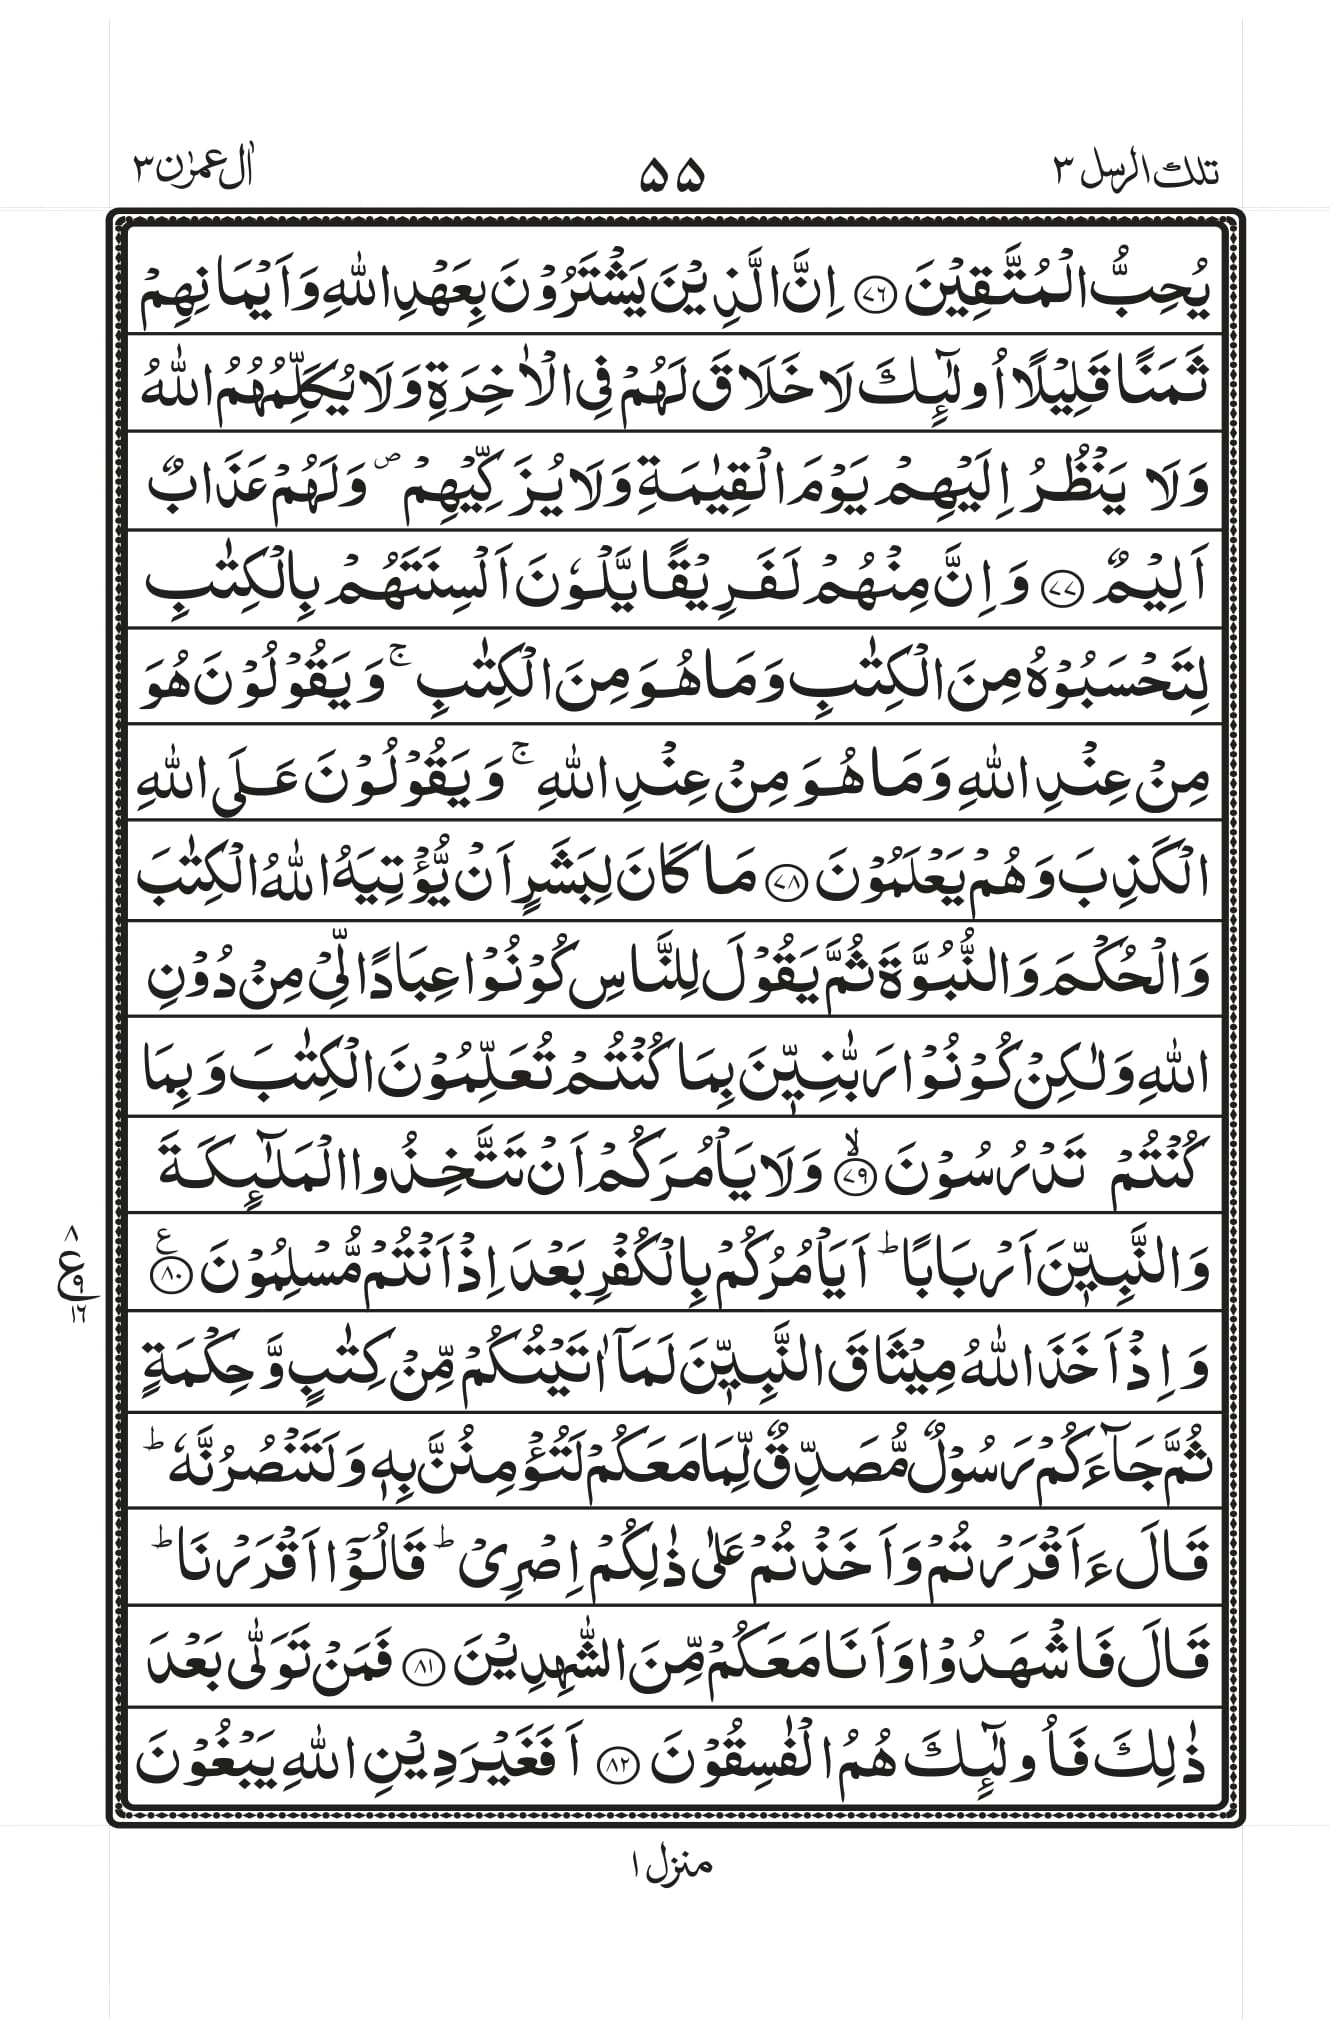 تلك الرسل ٣
۵۵
اٰل عمرٰن ٣
يُحِبُّ الۡمُتَّقِيۡنَ ﴿۷۶﴾ اِنَّ الَّذِيۡنَ يَشۡتَرُوۡنَ بِعَهۡدِ اللّٰهِ وَاَيۡمَانِهِمۡ
ثَمَنًا قَلِيۡلًا اُولٰٓئِكَ لَا خَلَاقَ لَهُمۡ فِى الۡاٰخِرَةِ وَلَا يُكَلِّمُهُمُ اللّٰهُ
وَلَا يَنۡظُرُ اِلَيۡهِمۡ يَوۡمَ الۡقِيٰمَةِ وَلَا يُزَكِّيۡهِمۡ ۖ وَلَهُمۡ عَذَابٌ
اَلِيۡمٌ ﴿۷۷﴾ وَاِنَّ مِنۡهُمۡ لَفَرِيۡقًا يَّلۡوٗنَ اَلۡسِنَتَهُمۡ بِالۡكِتٰبِ
لِتَحۡسَبُوۡهُ مِنَ الۡكِتٰبِ وَمَا هُوَ مِنَ الۡكِتٰبِ ۚ وَيَقُوۡلُوۡنَ هُوَ
مِنۡ عِنۡدِ اللّٰهِ وَمَا هُوَ مِنۡ عِنۡدِ اللّٰهِ ۚ وَيَقُوۡلُوۡنَ عَلَى اللّٰهِ
الۡكَذِبَ وَهُمۡ يَعۡلَمُوۡنَ ﴿۷۸﴾ مَا كَانَ لِبَشَرٍ اَنۡ يُّؤۡتِيَهُ اللّٰهُ الۡكِتٰبَ
وَالۡحُكۡمَ وَالنُّبُوَّةَ ثُمَّ يَقُوۡلَ لِلنَّاسِ كُوۡنُوۡا عِبَادًا لِّىۡ مِنۡ دُوۡنِ
اللّٰهِ وَلٰكِنۡ كُوۡنُوۡا رَبّٰنِيّٖنَ بِمَا كُنۡتُمۡ تُعَلِّمُوۡنَ الۡكِتٰبَ وَبِمَا
كُنۡتُمۡ تَدۡرُسُوۡنَ ۙ﴿۷۹﴾ وَلَا يَاۡمُرَكُمۡ اَنۡ تَتَّخِذُوا الۡمَلٰٓئِكَةَ
وَالنَّبِيّٖنَ اَرۡبَابًا ؕ اَيَاۡمُرُكُمۡ بِالۡكُفۡرِ بَعۡدَ اِذۡ اَنۡتُمۡ مُّسۡلِمُوۡنَ ﴿۸۰﴾ ع
۸ ع ۹ ۱۶
وَاِذۡ اَخَذَ اللّٰهُ مِيۡثَاقَ النَّبِيّٖنَ لَمَاۤ اٰتَيۡتُكُمۡ مِّنۡ كِتٰبٍ وَّحِكۡمَةٍ
ثُمَّ جَآءَكُمۡ رَسُوۡلٌ مُّصَدِّقٌ لِّمَا مَعَكُمۡ لَتُؤۡمِنُنَّ بِهٖ وَلَتَنۡصُرُنَّهٗ ؕ
قَالَ ءَاَقۡرَرۡتُمۡ وَاَخَذۡتُمۡ عَلٰى ذٰلِكُمۡ اِصۡرِىۡ ؕ قَالُوۡۤا اَقۡرَرۡنَا ؕ
قَالَ فَاشۡهَدُوۡا وَاَنَا مَعَكُمۡ مِّنَ الشّٰهِدِيۡنَ ﴿۸۱﴾ فَمَنۡ تَوَلّٰى بَعۡدَ
ذٰلِكَ فَاُولٰٓئِكَ هُمُ الۡفٰسِقُوۡنَ ﴿۸۲﴾ اَفَغَيۡرَ دِيۡنِ اللّٰهِ يَبۡغُوۡنَ
منزل ۱